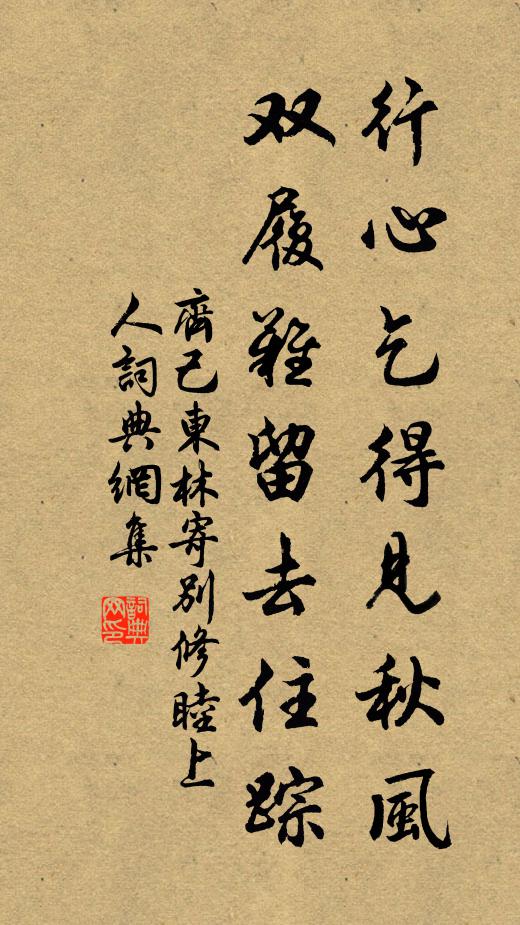 行心乞得見秋風
双履難留去住踪
齊己東林寄別修睦上
人詞典網集
詞典
网印